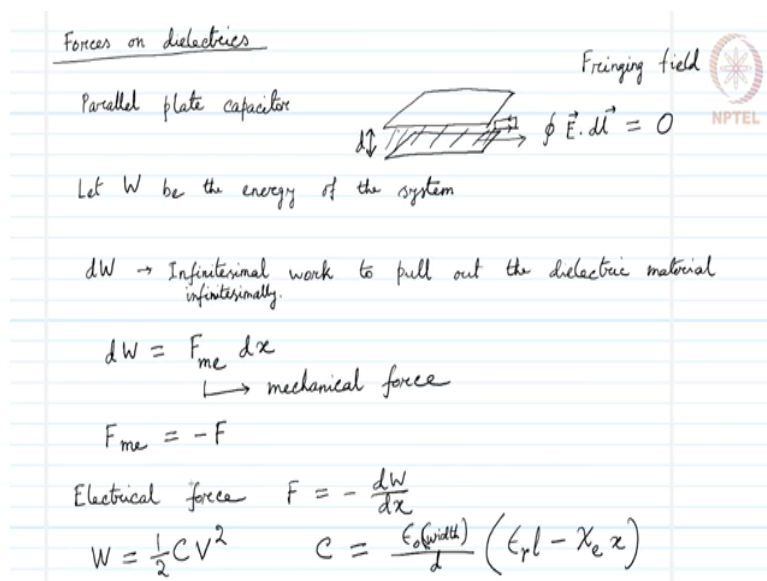 Forces on dielectrics
Fringing field
NPTEL
Parallel plate capacitor
d↕ ∮ E⃗. dl⃗ = 0
Let W be the energy of the system
dW → Infinitesimal work to pull out the dielectric material
infinitesimally.
dW = F_me dx
↳ mechanical force
F_me = -F
Electrical force F = - dW/dx
W = 1/2 CV² C = ϵ₀(width)/d (ϵ_r l - χ_e x)